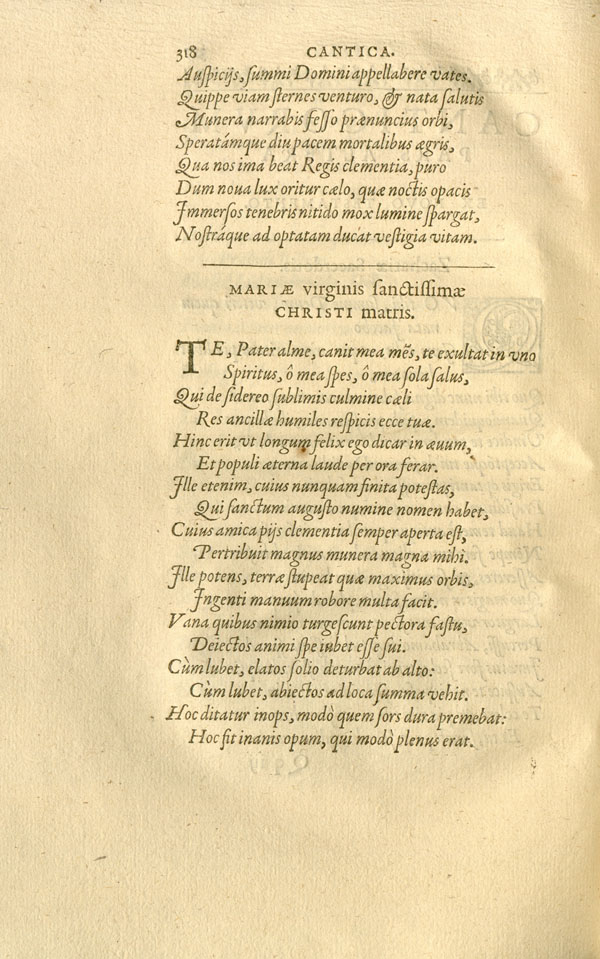 318 CANTICA.
Auſpicijs, ſummi Domini appellabere vates.
Quippe viam ſternes venturo, & nata ſalutis
Munera narrabis feſſo prænuncius orbi,
Speratámque diu pacem mortalibus ægris,
Qua nos ima beat Regis clementia, puro
Dum noua lux oritur cælo, quæ noctis opacis
Immerſos tenebris nitido mox lumine ſpargat,
Noſtráque ad optatam ducat veſtigia vitam.
MARIÆ virginis ſanctiſſimæ
CHRISTI matris.
TE, Pater alme, canit mea mẽs, te exultat in vno
Spiritus, ô mea ſpes, ô mea ſola ſalus,
Qui de ſidereo ſublimis culmine cæli
Res ancillæ humiles reſpicis ecce tuæ.
Hinc erit vt longum felix ego dicar in æuum,
Et populi æterna laude per ora ferar.
Ille etenim, cuius nunquam finita poteſtas,
Qui ſanctum auguſto numine nomen habet,
Cuius amica pijs clementia ſemper aperta eſt,
Pertribuit magnus munera magna mihi.
Ille potens, terræ ſtupeat quæ maximus orbis,
Ingenti manuum robore multa facit.
Vana quibus nimio turgeſcunt pectora faſtu,
Deiectos animi ſpe iubet eſſe ſui.
Cùm lubet, elatos ſolio deturbat ab alto:
Cùm lubet, abiectos ad loca ſumma vehit.
Hoc ditatur inops, modò quem ſors dura premebat:
Hoc fit inanis opum, qui modò plenus erat.